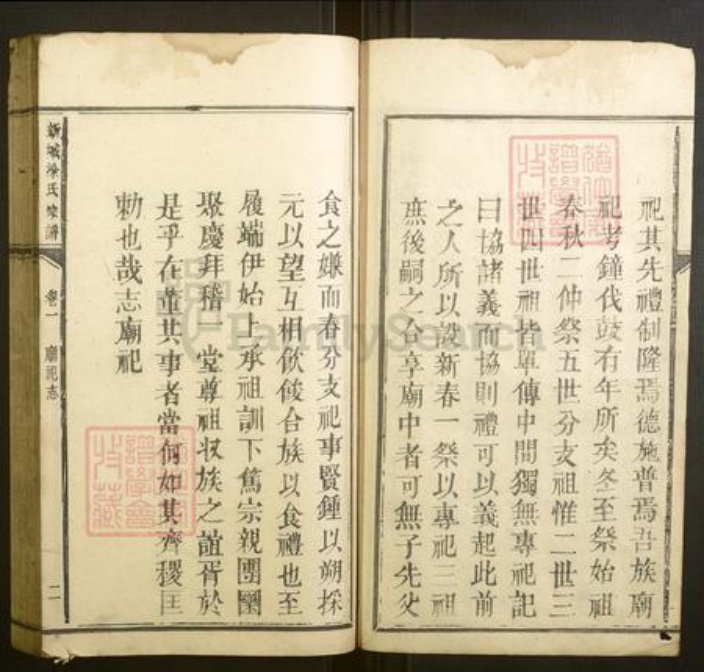 祀其先禮制隆焉德施普焉吾族廟
祀考鐘伐鼓有年所矣冬至祭始祖
春秋二仲祭五世分支祖惟二世三
世四世祖皆單傳中間獨無專祀記
曰協諸義而協則禮可以義起此前
之人所以設新春一祭以專祀三祖
庶後嗣之合享廟中者可無子先父
食之嫌而春分支祀事賢鍾以朔採
元以望互相飲餕合族以食禮也至
履端伊始上承祖訓下篤宗親團圞
聚慶拜稽一堂尊祖收族之誼胥於
是乎在董其事者當何如其齊稷匡
勅也哉志廟祀
新城 氏宗譜
卷一
廟祀志
二
FamilySearch
譜學會
收藏
譜學會
收藏